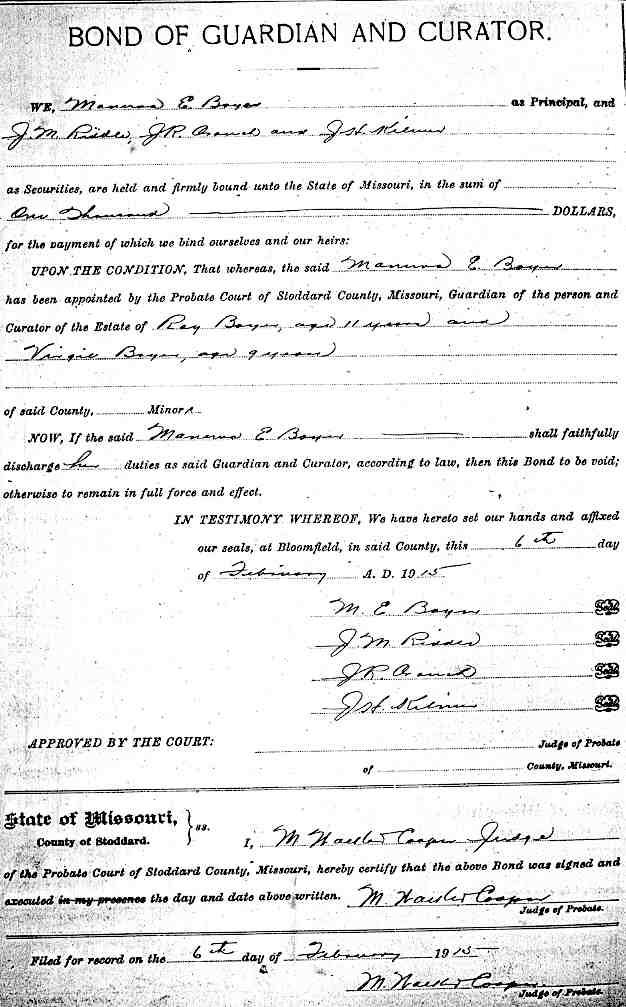 BOND OF GUARDIAN AND CURATOR.
WE, Manerva E Boyer as Principal, and
J. M. , J R Crouch and J H Kilmer
as Securities, are held and firmly bound unto the State of Missouri, in the sum of
One Thousand DOLLARS,
for the payment of which we bind ourselves and our heirs:
UPON THE CONDITION, That whereas, the said Manerva E Boyer
has been appointed by the Probate Court of Stoddard County, Missouri, Guardian of the person and
Curator of the Estate of Roy Boyer, age 11 years and
Virgie Boyer, age 9 years
of said County, Minors
NOW, If the said Manerva E Boyer shall faithfully
discharge her duties as said Guardian and Curator, according to law, then this Bond to be void;
otherwise to remain in full force and effect.
IN TESTIMONY WHEREOF, We have hereto set our hands and affixed
our seals, at Bloomfield, in said County, this 6th day
of February A. D. 1915
M. E Boyer Seal
J M Seal
J R Crouch Seal
J H Kilmer Seal
APPROVED BY THE COURT: Judge of Probate
of County, Missouri.
State of Missouri,
County of Stoddard. } ss. I, M Cooper Judge
of the Probate Court of Stoddard County, Missouri, hereby certify that the above Bond was signed and
executed in my presence the day and date above written. M. Cooper
Judge of Probate.
Filed for record on the 6th day of February 1915
M. Cooper
Judge of Probate.